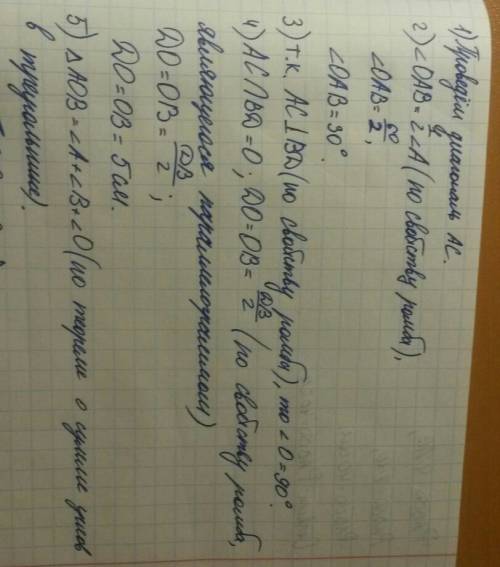 1) Проведём диагональ АС.
2) ∠OAB = 1/2 ∠A (по свойству ромба),
∠OAB = 60/2;
∠OAB = 30°.
3) т.к. AC ⊥ BD (по свойству ромба), то ∠O = 90°.
4) AC ∩ BD = O; DO = OB = DB/2 (по свойству ромба,
являющегося параллелограммом)
DO = OB = DB/2;
DO = OB = 5 см.
5) △AOB = ∠A + ∠B + ∠O (по теореме о сумме углов
в треугольнике).